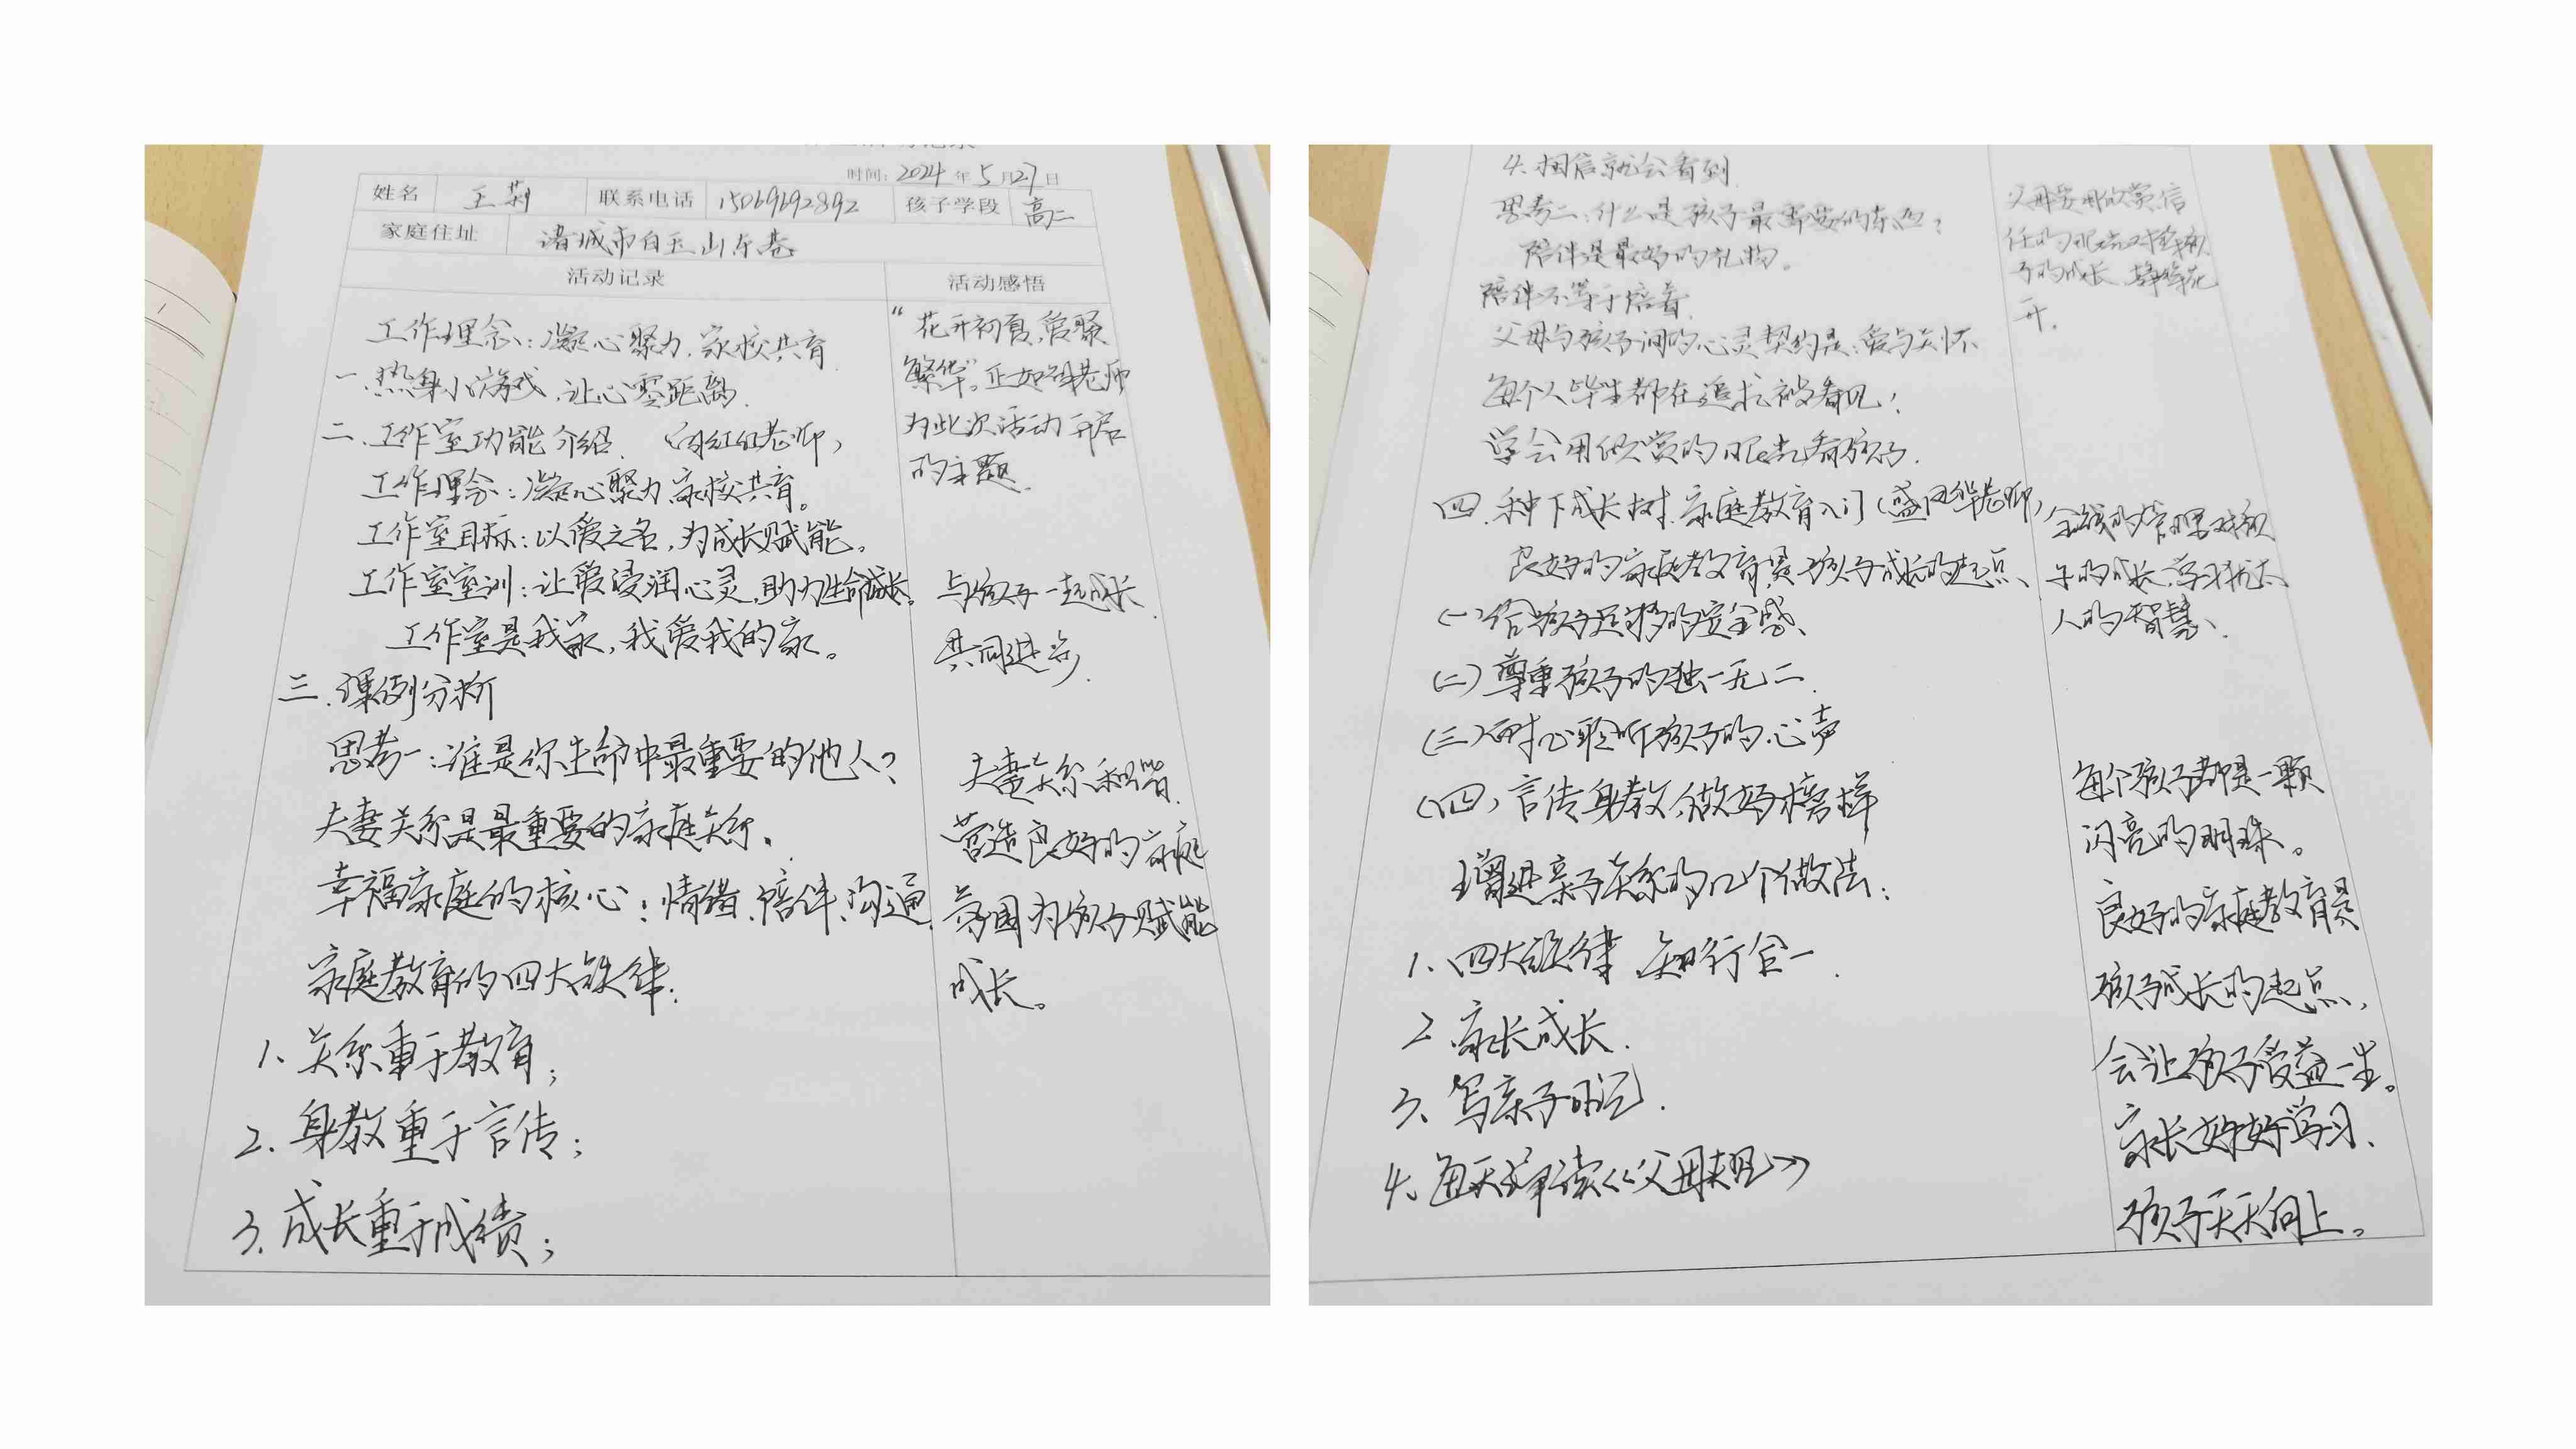 时间：2024年5月27日
姓名 王 联系电话 15069692892 孩子学段 高二
家庭住址 诸城市白玉山东巷
活动记录
工作理念：凝心聚力，家校共育
一.热身小游戏，让心零距离.
二.工作室功能介绍. （红红老师）
工作理念：凝心聚力，家校共育。
工作室目标：以爱之名，为成长赋能。
工作室室训：让爱浸润心灵，助力生命成长。
工作室是我家，我爱我的家。
三.课例分析
思考一：谁是你生命中最重要的他人？
夫妻关系是最重要的家庭关系.
幸福家庭的核心：情绪、陪伴、沟通.
家庭教育的四大铁律：
1、关系重于教育；
2.身教重于言传；
3.成长重于成绩；
活动感悟
“花开初夏，爱聚
繁华”。正如老师
为此次活动开启
的主题.
与孩子一起成长
共同进步.
夫妻关系和谐.
营造良好的家庭
氛围为孩子赋能
成长。
4.相信就会看到.
思考二：什么是孩子最需要的东西？
陪伴是最好的礼物。
陪伴不等于陪着.
父母与孩子间的心灵契约是：爱与关怀
每个人毕生都在追求被看见！
学会用欣赏的眼光看孩子.
四.种下成长树.家庭教育入门（盛风华老师）
良好的家庭教育是孩子成长的起点、
（一）给孩子足够的安全感、
（二）尊重孩子的独一无二.
（三）耐心聆听孩子的心声
（四）言传身教，做好榜样
增进亲子关系的几个做法：
1、四大铁律 知行合一.
2.家长成长.
3、写亲子日记.
4、每天诵读《父母规》
父母要用欣赏、信
任的眼光对待孩
子的成长，静待花
开.
的管理孩
子的成长，学习犹太
人的智慧、
每个孩子都是一颗
闪亮的明珠。
良好的家庭教育是
孩子成长的起点，
会让孩子受益一生。
家长好好学习、
孩子天天向上。